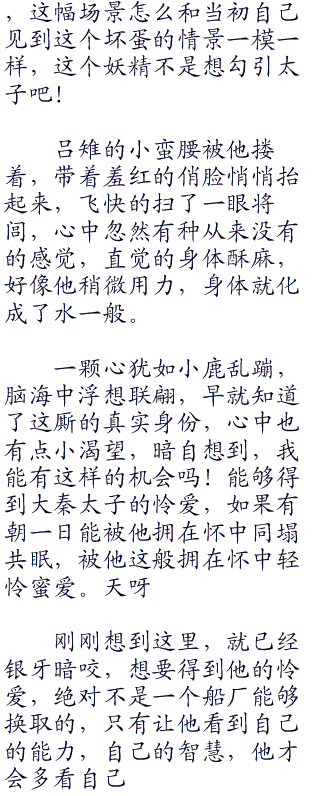 ，这幅场景怎么和当初自己
见到这个坏蛋的情景一模一
样，这个妖精不是想勾引太
子吧！
吕雉的小蛮腰被他搂
着，带着羞红的俏脸悄悄抬
起来，飞快的扫了一眼将
闾，心中忽然有种从来没有
的感觉，直觉的身体酥麻，
好像他稍微用力，身体就化
成了水一般。
一颗心犹如小鹿乱蹦，
脑海中浮想联翩，早就知道
了这厮的真实身份，心中也
有点小渴望，暗自想到，我
能有这样的机会吗！能够得
到大秦太子的怜爱，如果有
朝一日能被他拥在怀中同塌
共眠，被他这般拥在怀中轻
怜蜜爱。天呀
刚刚想到这里，就已经
银牙暗咬，想要得到他的怜
爱，绝对不是一个船厂能够
换取的，只有让他看到自己
的能力，自己的智慧，他才
会多看自己